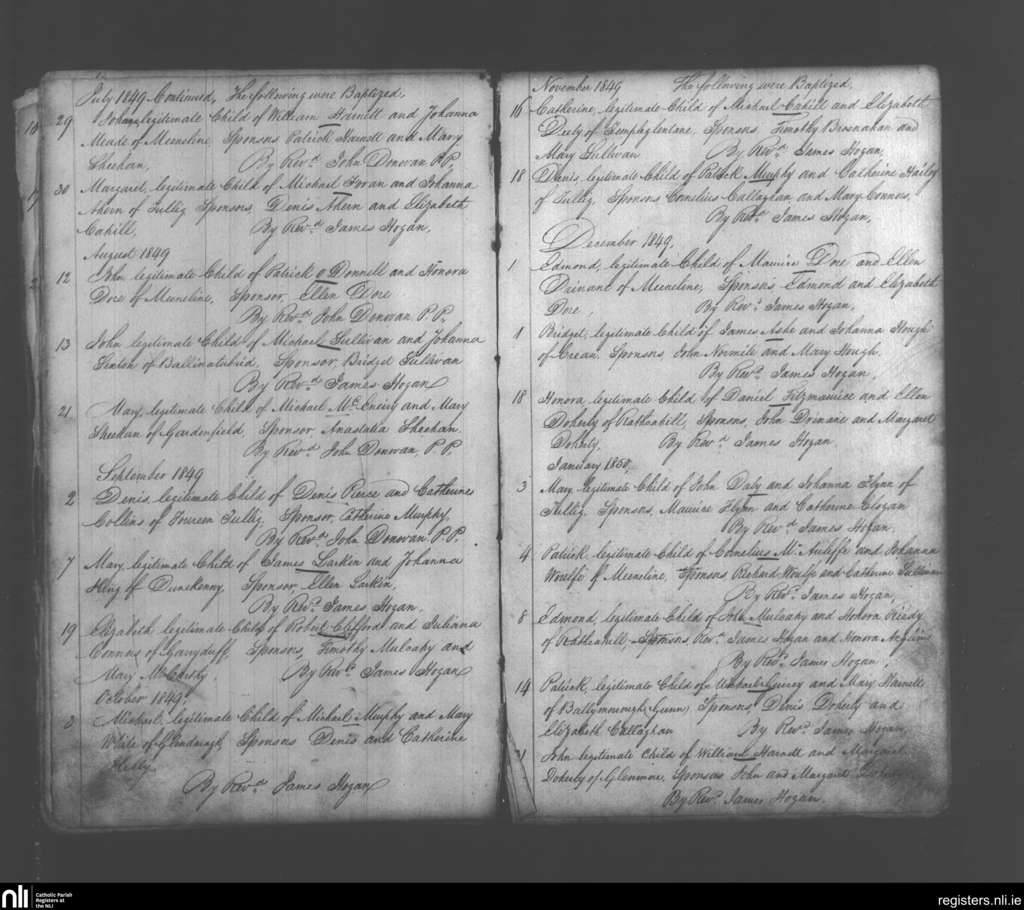 July 1849 Continued, The following were Baptized,
29 Johanna legitimate Child of William Harnett and Johanna
Meade of Meeneline, Sponsors Patrick Harnett and Mary
Sheehan, By Revd. John Donovan, P.P.
30 Margaret, legitimate Child of Michael Horan and Johanna
Ahern of Tullig Sponsors, Denis Ahern and Elizabeth
Cahill, By Revd. James Hogan,
August 1849
12 John legitimate Child of Patrick o Donnell and Honora
Dore of Meeneline, Sponsor, Ellen Dore
By Revd. John Donovan, P.P.
13 John legitimate Child of Michael Sullivan and Johanna
Fenton of Ballinatubrid, Sponsor, Bridget Sullivan
By Revd. James Hogan
21 Mary, legitimate Child of Michael Mc Eneiry and Mary
Sheehan of Gardenfield, Sponsor, Anastatia Sheehan.
By Revd. John Donovan, P.P.
September 1849
2 Denis, legitimate Child of Denis Pierce and Catherine
Collins of Tullig, Sponsor, Catherine Murphy,
By Revd. John Donovan P.P.
7 Mary, legitimate Child of James Larkin and Johanna
King of Dunekenny, Sponsor, Ellen Larkin,
By Revd. James Hogan,
19 Elizabeth, legitimate Child of Robert Clifford and Juliana
Connors of Garryduff, Sponsors, Timothy Mulcahy and
Mary By Revd. James Hogan
October 1849,
3 Michael, legitimate Child of Michael Murphy and Mary
White of Sponsors Denis and Catherine
By Revd. James Hogan
November 1849 The following were Baptized,
16 Catherine, legitimate Child of Michael Cahill and Elizabeth
of Templeglentane, Sponsors, Timothy Brosnahan and
Mary Sullivan By Revd. James Hogan,
18 Denis, legitimate Child of Patrick Murphy and Catherine
of Tullig, Sponsors Cornelius Callaghan and Mary Connors,
By Revd. James Hogan,
December 1849,
1 Edmond, legitimate Child of Maurice Dore and Ellen
Drinane of Meeneline, Sponsors Edmond and Elizabeth
Dore, By Revd. James Hogan,
1 Bridget, legitimate Child of James Ashe and Johanna Hough
of Crean, Sponsors, John Normile and Mary Hough,
By Revd. James Hogan,
18 Honora, legitimate Child of Daniel Fitzmaurice and Ellen
Doherty of Rathcahill, Sponsors, John Drinane and Margaret
Doherty, By Revd. James Hogan,
January 1850,
3 Mary, legitimate Child of John Daly and Johanna Flynn of
Tullig, Sponsors, Maurice Flynn and Catherine
By Revd. James Hogan,
4 Patrick, legitimate Child of Cornelius Mc Auliffe and Johanna
Woulfe of Meeneline, Sponsors, Richard Woulfe and Catherine Sullivan
By Revd. James Hogan,
8 Edmond, legitimate Child of John Mulcahy and Honora Reidy
of Rathcahill, Sponsors, Revd. James Hogan and Honora
By Revd. James Hogan,
14 Patrick, legitimate Child of Michael Guiney and Mary Harnett
of Sponsors, Denis Doherty and
Elizabeth Callaghan By Revd. James Hogan
John legitimate Child of William Harnett and Margaret
Doherty of Glenmore, Sponsors John and Margaret
By Revd. James Hogan.
nli Catholic Parish
Registers at
the NLI
registers.nli.ie